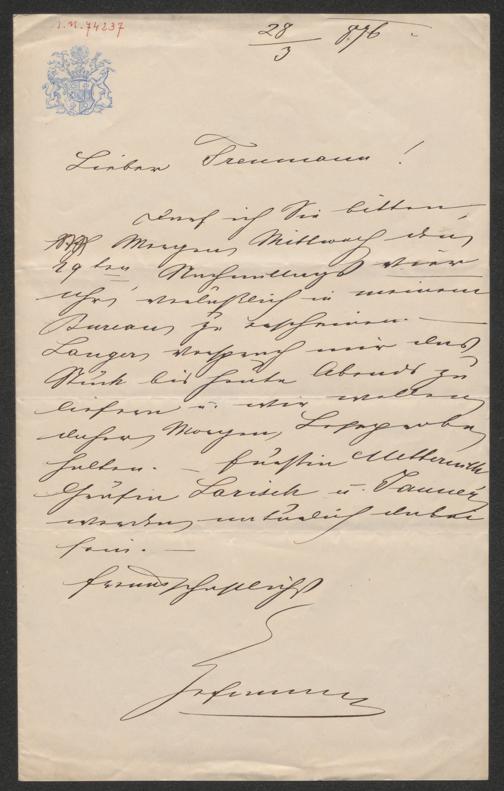 J.N. 74237
28/3 876.
Lieber Treumann!
Darf ich Sie bitten
Morgen Mittwoch den
29ten Nachmittags vier
Uhr, verläßlich in meinem
Bureau zu erscheinen. —
Langer versprach mir das
Stück bis heute Abends zu
liefern u. wir wollen
daher Morgen, Leseprobe
halten. — Fürstin Metternich
Gräfin Larisch u. Janner
werden natürlich dabei
sein. —
freundschaftlichst